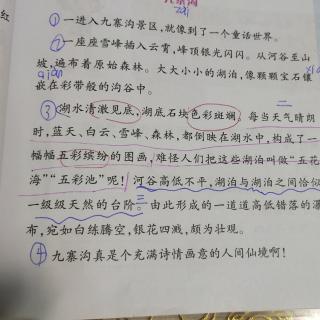 九寨沟
zai
红
①一进入九寨沟景区，就像到了一个童话世界。
②一座座雪峰插入云霄，峰顶银光闪闪。从河谷至山
坡，遍布着原始森林。大大小小的湖泊，像颗颗宝石镶
qian
嵌在彩带般的沟谷中。
二
③湖水清澈见底，湖底石块色彩斑斓。每当天气晴朗
时，蓝天、白云、雪峰、森林，都倒映在湖水中，构成了一
幅幅五彩缤纷的图画，难怪人们把这些湖泊叫做“五花
海”“五彩池”呢！河谷高低不平，湖泊与湖泊之间恰似
一级级天然的台阶。三由此形成的一道道高低错落的瀑
布，宛如白练腾空，银花四溅，颇为壮观。
④九寨沟真是个充满诗情画意的人间仙境啊！